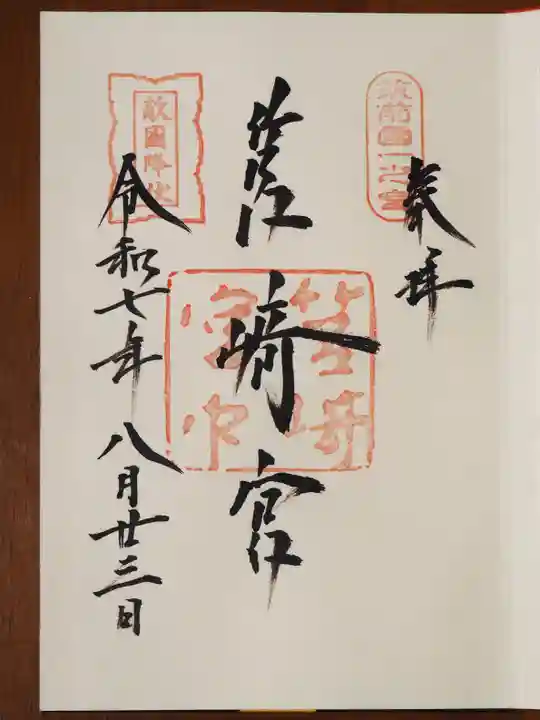 筑前國一之宮
奉拝
筥崎宮
筥崎宮印
敵国降伏
令和七年八月廿三日